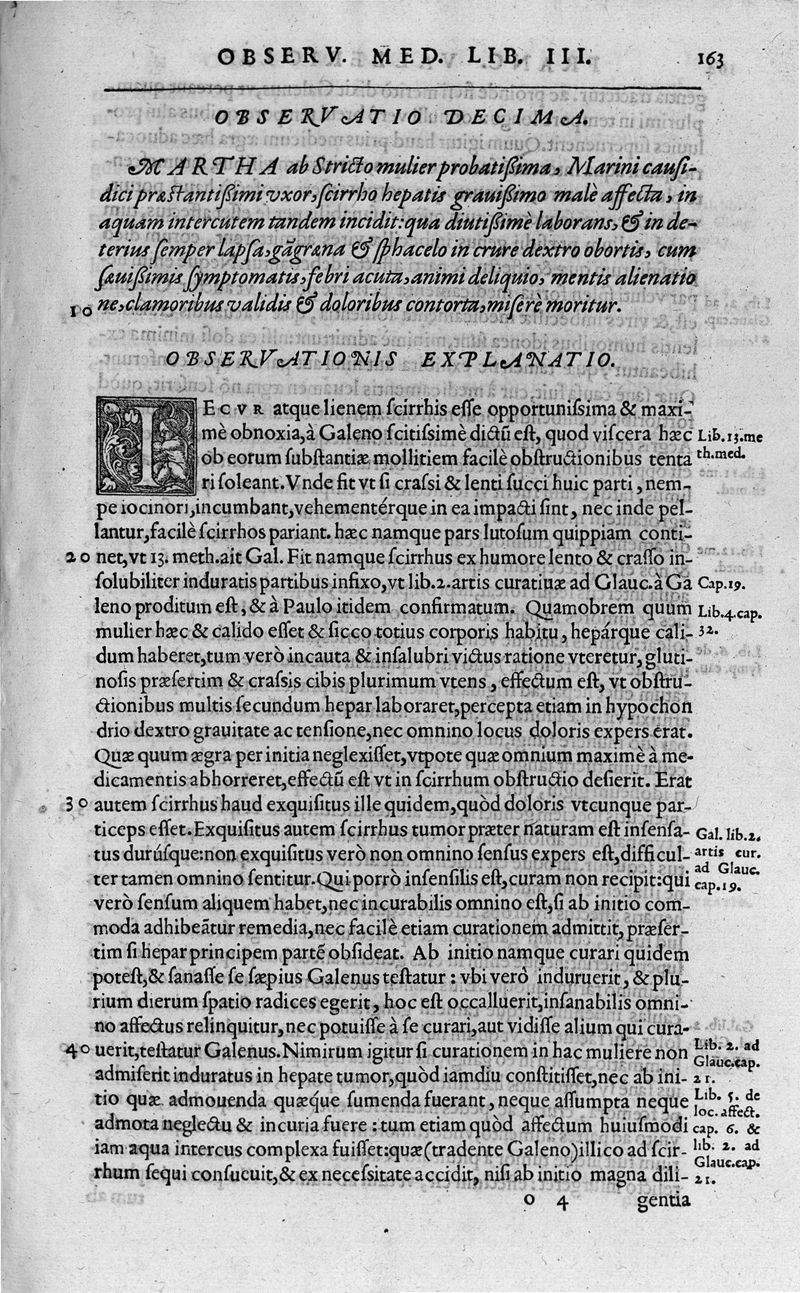 OBSERV. MED. LIB. III. 163
OBSERVATIO DECIMA.
MARTHA ab Stricto mulier probatißima, Marini cauſi-
dici præstantißimi vxor, ſcirrho hepatis grauißimo malè affecta, in
aquam intercutem tandem incidit: qua diutißimè laborans, & in de-
terius ſemper lapſa, gāgræna & ſphacelo in crure dextro obortis, cum
ſæuißimis ſymptomatis, febri acuta, animi deliquio, mentis alienatio
10 ne, clamoribus validis & doloribus contorta, miſerè moritur.
OBSERVATIONIS EXPLANATIO.
IECVR atque lienem ſcirrhis eſſe opportuniſsima & maxi-
mè obnoxia, à Galeno ſcitiſsimè dictū eſt, quod viſcera hæc Lib. 13. me
ob eorum ſubſtantiæ mollitiem facilè obſtructionibus tenta th. med.
ri ſoleant. Vnde fit vt ſi craſsi & lenti ſucci huic parti, nem-
pe iocinori, incumbant, vehementérque in ea impacti ſint, nec inde pel-
lantur, facilè ſcirrhos pariant. hæc namque pars lutoſum quippiam conti-
20 net, vt 13. meth. ait Gal. Fit namque ſcirrhus ex humore lento & craſſo in-
ſolubiliter induratis partibus infixo, vt lib. 2. artis curatiuæ ad Glauc. à Ga Cap. 19.
leno proditum eſt, & à Paulo itidem confirmatum. Quamobrem quum Lib. 4. cap.
mulier hæc & calido eſſet & ſicco totius corporis habitu, hepárque cali- 32.
dum haberet, tum verò incauta & inſalubri victus ratione vteretur, gluti-
noſis præſertim & craſsis cibis plurimum vtens, effectum eſt, vt obſtru-
ctionibus multis ſecundum hepar laboraret, percepta etiam in hypochon
drio dextro grauitate ac tenſione, nec omnino locus doloris expers erat.
Quæ quum ægra per initia neglexiſſet, vtpote quæ omnium maximè à me-
dicamentis abhorreret, effectū eſt vt in ſcirrhum obſtructio deſierit. Erat
30 autem ſcirrhus haud exquiſitus ille quidem, quòd doloris vtcunque par-
ticeps eſſet. Exquiſitus autem ſcirrhus tumor præter naturam eſt inſenſa- Gal. lib. 2.
tus durúſque: non exquiſitus verò non omnino ſenſus expers eſt, difficul- artis cur.
ter tamen omnino ſentitur. Qui porrò inſenſilis eſt, curam non recipit: qui ad Glauc. cap. 19.
verò ſenſum aliquem habet, nec incurabilis omnino eſt, ſi ab initio com-
moda adhibeātur remedia, nec facilè etiam curationem admittit, præſer-
tim ſi hepar principem partē obſideat. Ab initio namque curari quidem
poteſt, & ſanaſſe ſe ſæpius Galenus teſtatur: vbi verò induruerit, & plu-
rium dierum ſpatio radices egerit, hoc eſt occalluerit, inſanabilis omni-
no affectus relinquitur, nec potuiſſe à ſe curari, aut vidiſſe alium qui cura-
40 uerit, teſtatur Galenus. Nimirum igitur ſi curationem in hac muliere non Lib. 2. ad Glauc. cap.
admiſerit induratus in hepate tumor, quòd iamdiu conſtitiſſet, nec ab ini- 21.
tio quæ admouenda quæque ſumenda fuerant, neque aſſumpta neque Lib. 5. de loc. affect.
admota neglectu & incuria fuere: tum etiam quòd affectum huiuſmodi cap. 6. &
iam aqua intercus complexa fuiſſet: quæ (tradente Galeno) illico ad ſcir- lib. 2. ad Glauc. cap.
rhum ſequi conſueuit, & ex neceſsitate accidit, niſi ab initio magna dili- 21.
o 4 gentia